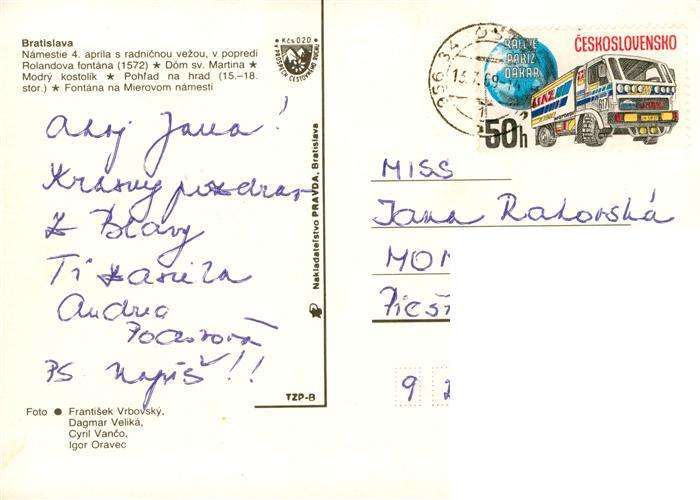 Bratislava
Námestie 4. apríla s radničnou vežou, v popredí
Rolandova fontána (1572) ★ Dóm sv. Martina ★
Modrý kostolík ★ Pohľad na hrad (15.–18.
stor.) ★ Fontána na Mierovom námestí
Kčs 0,20
Ahoj Jana!
Krásny pozdrav
Z Blavy
Ti zasiela
Andrea
PS Napíš!!
Foto ● František Vrbovský,
Dagmar Veliká,
Cyril Vančo,
Igor Oravec
Nakladateľstvo PRAVDA, Bratislava
TZP-B
956 34
RALLYE
PARIŽ
DAKAR
ČESKOSLOVENSKO
LIAZ
50h
MISS
Jana Rakovská
MON
Piešť
9 2